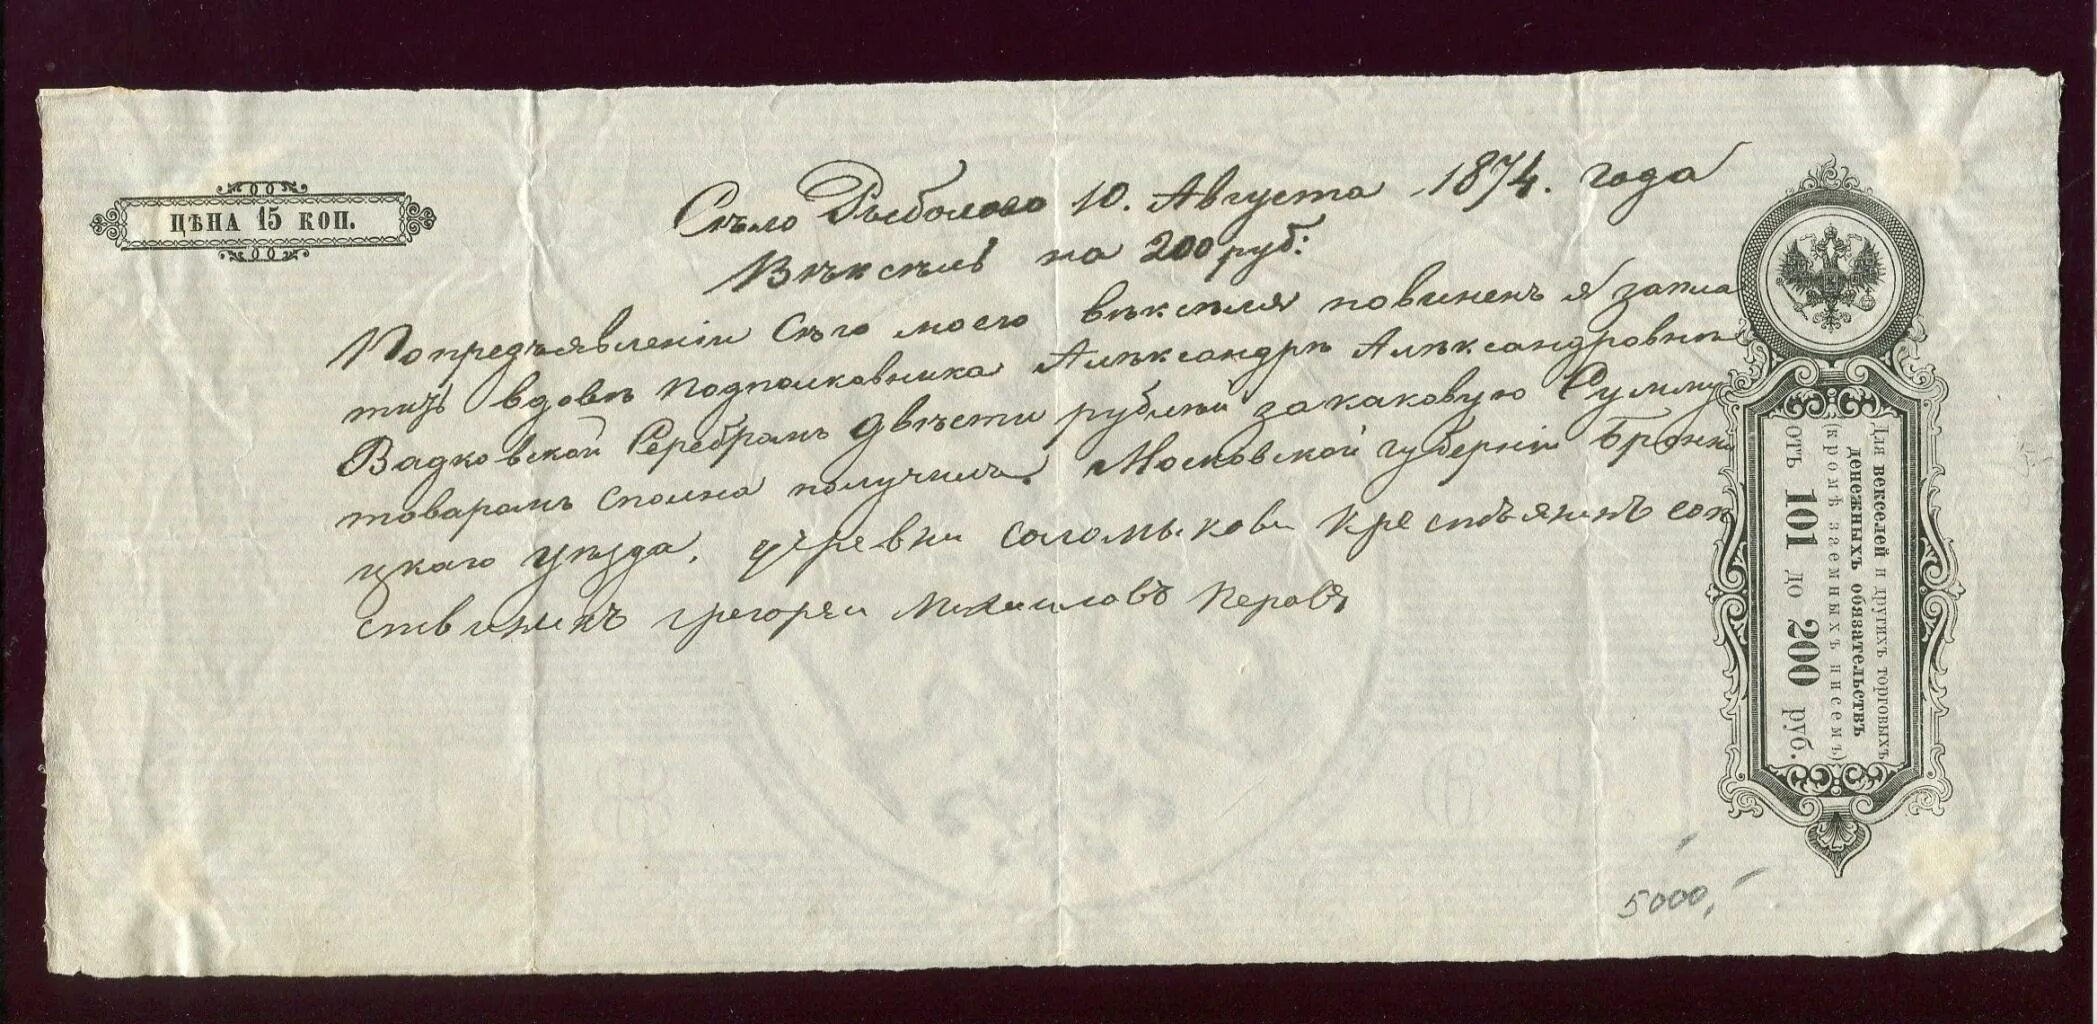 ЦѢНА 15 КОП.
Сѣло Рыболово 10. Августа 1874. года
Вѣксѣль на 200 руб:
Попредъявленіи Сѣго моего вѣксѣля повиненъ я запла
тить вдовѣ подполковника Алѣксандрѣ Алѣксандровнѣ
Вадковской Серебрамъ двѣсти рублѣй закаковую Сумму
товарамъ сполна получилъ. Московской губерніи Бронни
цкаго уѣзда, деревни соломыкови крестьянинъ соп
ствиникъ григореи Михаиловъ перовъ
Для векселей и другихъ торговыхъ
денежныхъ обязательствъ
(кромѣ заемныхъ писемъ)
отъ 101 до 200 руб.
5000,-